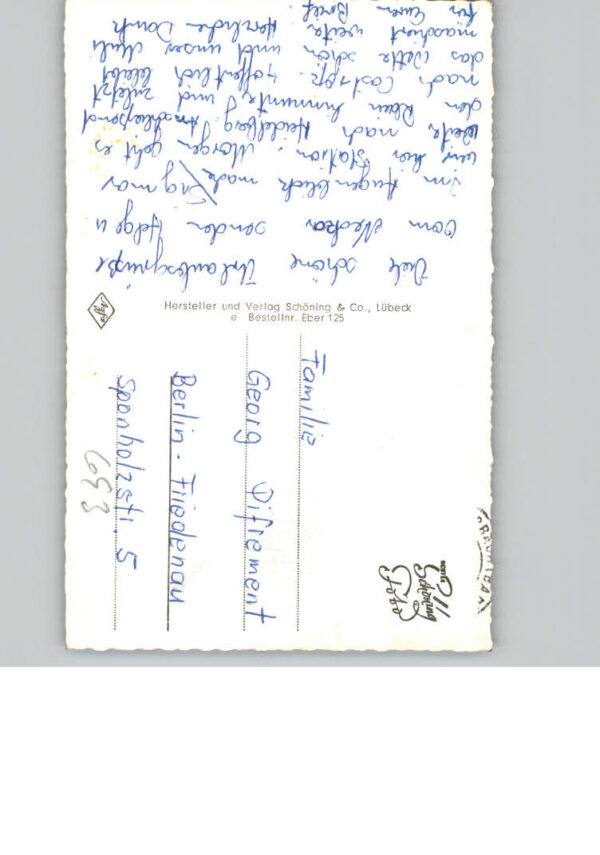 Viele schöne Urlaubsgrüße
vom Neckar senden Helga u.
Ingmar
Im Augenblick machen
wir hier Station. Morgen geht es
weiter nach Heidelberg. Anschließend
den Rhein hinunter und zuletzt
nach Hoffentlich bleibt
das Wetter schön und unser
marschiert weiter. Herzlichen Dank
für Euren Brief.
Hersteller und Verlag Schöning & Co., Lübeck
e Bestellnr. Eber 125
Agfa
Familie
Georg Difrement
Berlin - Friedenau
Sponholzstr. 5
693
Schöning
Foto